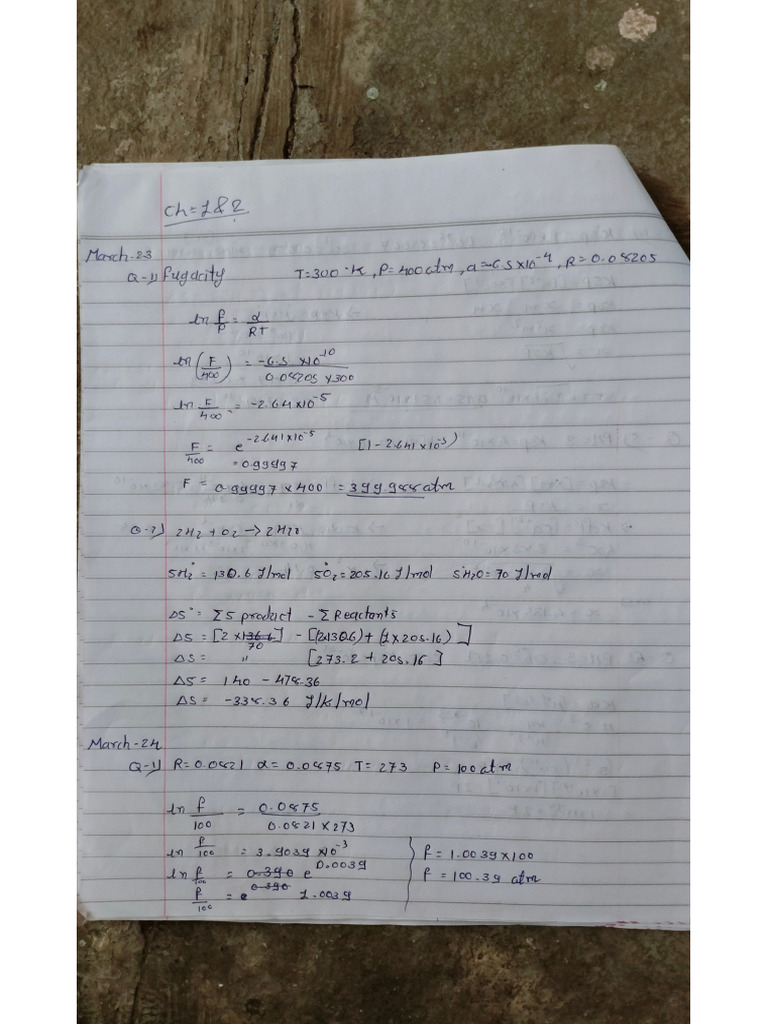 Ch = 1 & 2
March-23
Q-1) fugacity T=300 °K, P=400 atm, a=-6.5×10⁻⁴, R=0.08205
ln f/P = α/RT
ln (F/400) = -6.5 ×10⁻¹⁰ / 0.08205 ×300
ln F/400 = -2.641×10⁻⁵
F/400 = e^-2.641×10⁻⁵ [1-2.641×10⁻⁵]
= 0.99997
F = 0.99997 × 400 = 399.988 atm
Q-2) 2H₂ + O₂ → 2H₂O
SH₂° = 130.6 J/mol SO₂° = 205.16 J/mol SH₂O = 70 J/mol
ΔS° = ΣS product - Σ Reactants
ΔS = [2 × 70] - [(2×130.6) + (1 × 205.16)]
ΔS = " [273.2 + 205.16]
ΔS = 140 - 478.36
ΔS = -338.36 J/k/mol
March-24
Q-1) R=0.0821 α=0.0875 T=273 P=100 atm
ln f/100 = 0.0875 / 0.0821 × 273
ln f/100 = 3.9039 ×10⁻³
ln f/100 = e^0.0039
f/100 = 1.0039
f = 1.0039×100
f = 100.39 atm